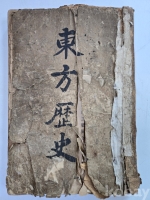 東方歷史